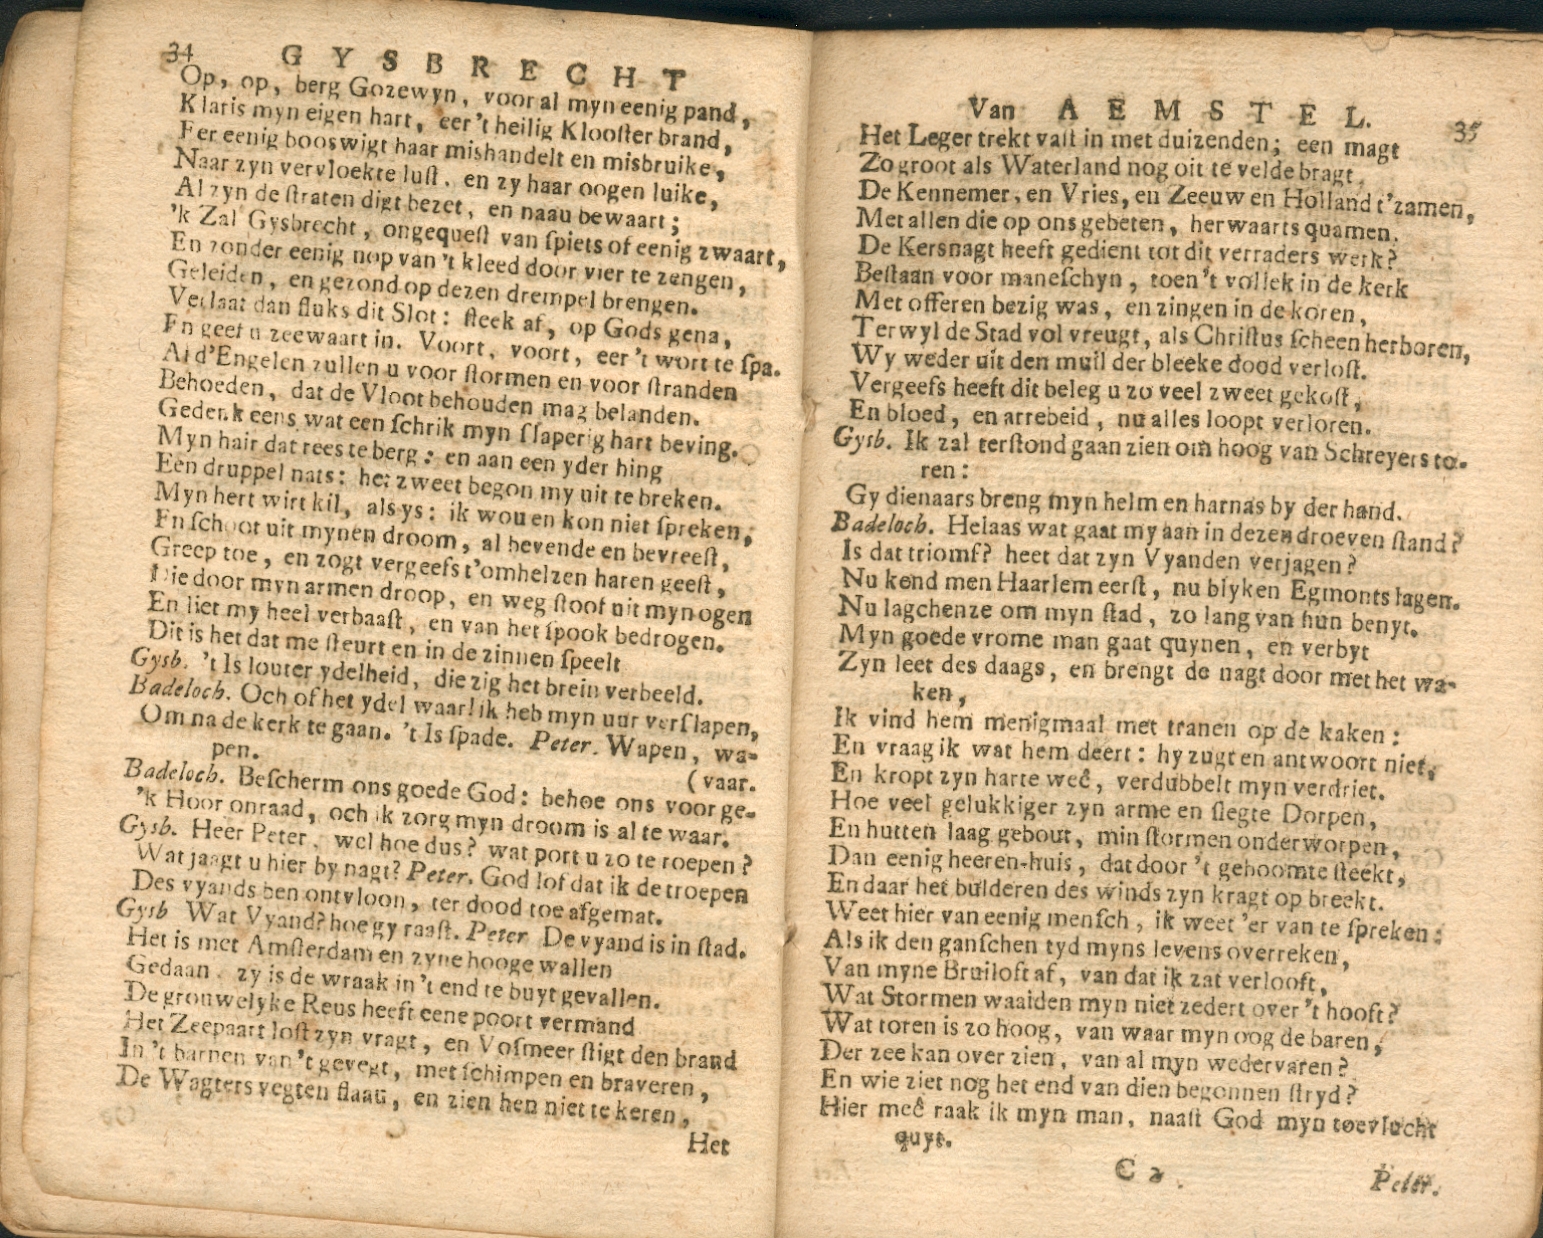 34 GYSBRECHT
Op, op, berg Gozewyn, voor al myn eenig pand,
Klaris myn eigen hart, eer 't heilig Klooſter brand,
Eer eenig booswigt haar mishandelt en misbruike,
Naar zyn vervloekte luſt, en zy haar oogen luike,
Al zyn de ſtraten digt bezet, en naau bewaart;
'k Zal Gysbrecht, ongequeſt van ſpiets of eenig zwaart,
En zonder eenig nop van 't kleed door vier te zengen,
Geleiden, en gezond op dezen drempel brengen.
Verlaat dan fluks dit Slot: ſteek af, op Gods gena,
En geef u zeewaart in. Voort, voort, eer 't wort te ſpa.
Ai d'Engelen zullen u voor ſtormen en voor ſtranden
Behoeden, dat de Vloot behouden mag belanden.
Gedenk eens wat een ſchrik myn ſlaperig hart beving.
Myn hair dat rees te berg: en aan een yder hing
Een druppel nats: het zweet begon my uit te breken.
Myn hert wirt kil, als ys: ik wou en kon niet ſpreken;
En ſchoot uit mynen droom, al bevende en bevreeſt,
Greep toe, en zogt vergeefs t'omhelzen haren geeſt,
Die door myn armen droop, en weg ſtoof uit myn ogen
En liet my heel verbaaſt, en van het ſpook bedrogen.
Dit is het dat me ſteurt en in de zinnen ſpeelt
Gysb. 't Is louter ydelheid, die zig het brein verbeeld.
Badeloch. Och of het ydel waar! ik heb myn uur verſlapen,
Om na de kerk te gaan. 't Is ſpade. Peter. Wapen, wa-
pen.
(vaar.
Badeloch. Beſcherm ons goede God: behoe ons voor ge-
'k Hoor onraad, och ik zorg myn droom is al te waar.
Gysb. Heer Peter, wel hoe dus? wat port u zo te roepen?
Wat jaagt u hier by nagt? Peter. God lof dat ik de troepen
Des vyands ben ontvloon, ter dood toe afgemat.
Gysb Wat Vyand? hoe gy raaſt. Peter De vyand is in ſtad.
Het is met Amſterdam en zyne hooge wallen
Gedaan. zy is de wraak in 't end te buyt gevallen.
De grouwelyke Reus heeft eene poort vermand
Het Zeepaart loſt zyn vragt, en Voſmeer ſtigt den brand
In 't barnen van 't gevegt, met ſchimpen en braveren,
De Wagters vegten flaau, en zien hen niet te keren,
Het
Van AEMSTEL. 35
Het Leger trekt vaſt in met duizenden; een magt
Zo groot als Waterland nog oit te velde bragt,
De Kennemer, en Vries, en Zeeuw en Holland t'zamen,
Met allen die op ons gebeten, herwaarts quamen.
De Kersnagt heeft gedient tot dit verraders werk?
Beſtaan voor maneſchyn, toen 't vollek in de kerk
Met offeren bezig was, en zingen in de koren,
Terwyl de Stad vol vreugt, als Chriſtus ſcheen herboren,
Wy weder uit den muil der bleeke dood verloſt.
Vergeefs heeft dit beleg u zo veel zweet gekoſt,
En bloed, en arrebeid, nu alles loopt verloren.
Gysb. Ik zal terſtond gaan zien om hoog van Schreyers to-
ren:
Gy dienaars breng myn helm en harnas by der hand.
Badeloch. Helaas wat gaat my aan in dezen droeven ſtand?
Is dat triomf? heet dat zyn Vyanden verjagen?
Nu kend men Haarlem eerſt, nu blyken Egmonts lagen.
Nu lagchenze om myn ſtad, zo lang van hun benyt.
Myn goede vrome man gaat quynen, en verbyt
Zyn leet des daags, en brengt de nagt door met het wa-
ken,
Ik vind hem menigmaal met tranen op de kaken:
En vraag ik wat hem deert: hy zugt en antwoort niet,
En kropt zyn harte weê, verdubbelt myn verdriet.
Hoe veel gelukkiger zyn arme en ſlegte Dorpen,
En hutten laag gebout, min ſtormen onderworpen,
Dan eenig heeren-huis, dat door 't geboomte ſteekt,
En daar het bulderen des winds zyn kragt op breekt.
Weet hier van eenig menſch, ik weet 'er van te ſpreken:
Als ik den ganſchen tyd myns levens overreken,
Van myne Bruiloft af, van dat ik zat verlooft,
Wat Stormen waaiden myn niet zedert over 't hooft?
Wat toren is zo hoog, van waar myn oog de baren,
Der zee kan over zien, van al myn wedervaren?
En wie ziet nog het end van dien begonnen ſtryd?
Hier meê raak ik myn man, naaſt God myn toevlucht
quyt.
C 2
Peter.